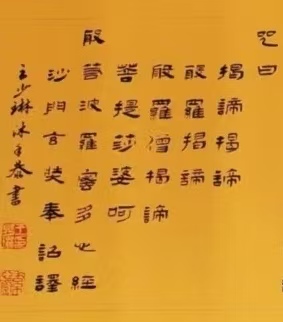 咒曰
揭諦揭諦
般羅揭諦
般羅僧揭諦
菩提莎婆呵
般若波羅蜜多心經
沙門玄奘奉詔譯
王少琳沐手恭書